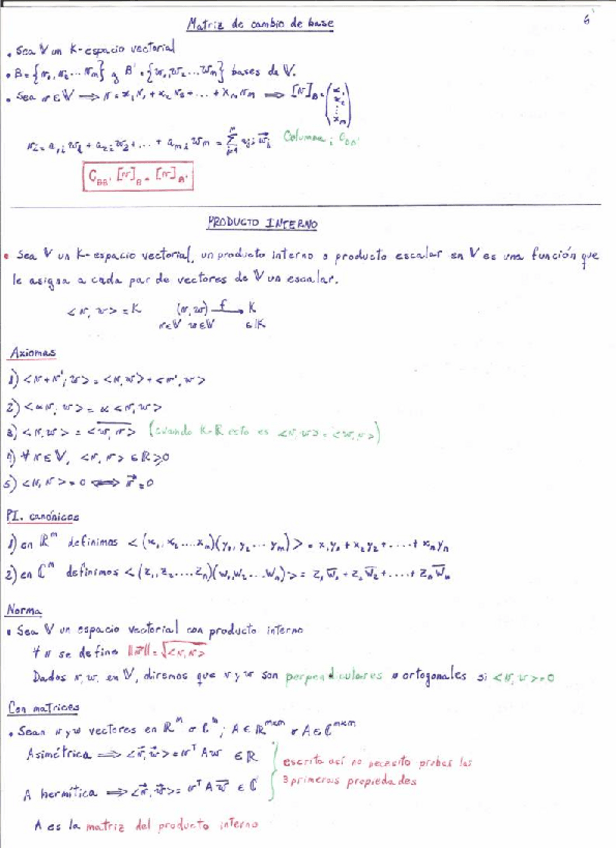 Matriz de cambio de base
6
• Sea V un K-espacio vectorial
• B = {v₁, v₂ ... vₙ} y B' = {w₁, w₂ ... wₙ} bases de V.
• Sea v ∈ V ⟹ v = x₁v₁ + x₂v₂ + ... + xₙvₙ ⟹ [v]_B = (x₁ x₂ ⋮ xₙ)
vᵢ = a₁ᵢw₁ + a₂ᵢw₂ + ... + aₙᵢwₙ = Σ aⱼᵢ w⃗ⱼ Columna i C_BB'
C_BB' [v]_B = [v]_B'
PRODUCTO INTERNO
• Sea V un K-espacio vectorial, un producto interno o producto escalar en V es una función que
le asigna a cada par de vectores de V un escalar.
<v, w> = K (v, w) —f→ K
v∈V w∈V ∈ K
Axiomas
1) <v + v', w> = <v, w> + <v', w>
2) <αv, w> = α <v, w>
3) <v, w> = \overline{<w, v>} (cuando K=R esto es <v, w> = <w, v>)
4) ∀ v ∈ V, <v, v> ∈ R ≥ 0
5) <v, v> = 0 ⟺ v⃗ = 0
PI. canónicos
1) en Rⁿ definimos <(x₁, x₂ ... xₙ)(y₁, y₂ ... yₙ)> = x₁y₁ + x₂y₂ + .... + xₙyₙ
2) en Cⁿ definimos <(z₁, z₂ .... zₙ)(w₁, w₂ ... wₙ)> = z₁w̄₁ + z₂w̄₂ + .... + zₙw̄ₙ
Norma
• Sea V un espacio vectorial con producto interno
∀ v se define ‖v⃗‖ = √<v, v>
Dados v, w, en V, diremos que v y w son perpendiculares o ortogonales si <v, w> = 0
Con matrices
• Sean v y w vectores en Rⁿ o Cⁿ; A ∈ Rⁿˣⁿ o A ∈ Cⁿˣⁿ
A simétrica ⟹ <v⃗, w⃗> = vᵀ A w ∈ R
escrito así no necesito probar las
3 primeras propiedades
A hermítica ⟹ <v⃗, w⃗> = vᵀ A w̄ ∈ C
A es la matriz del producto interno